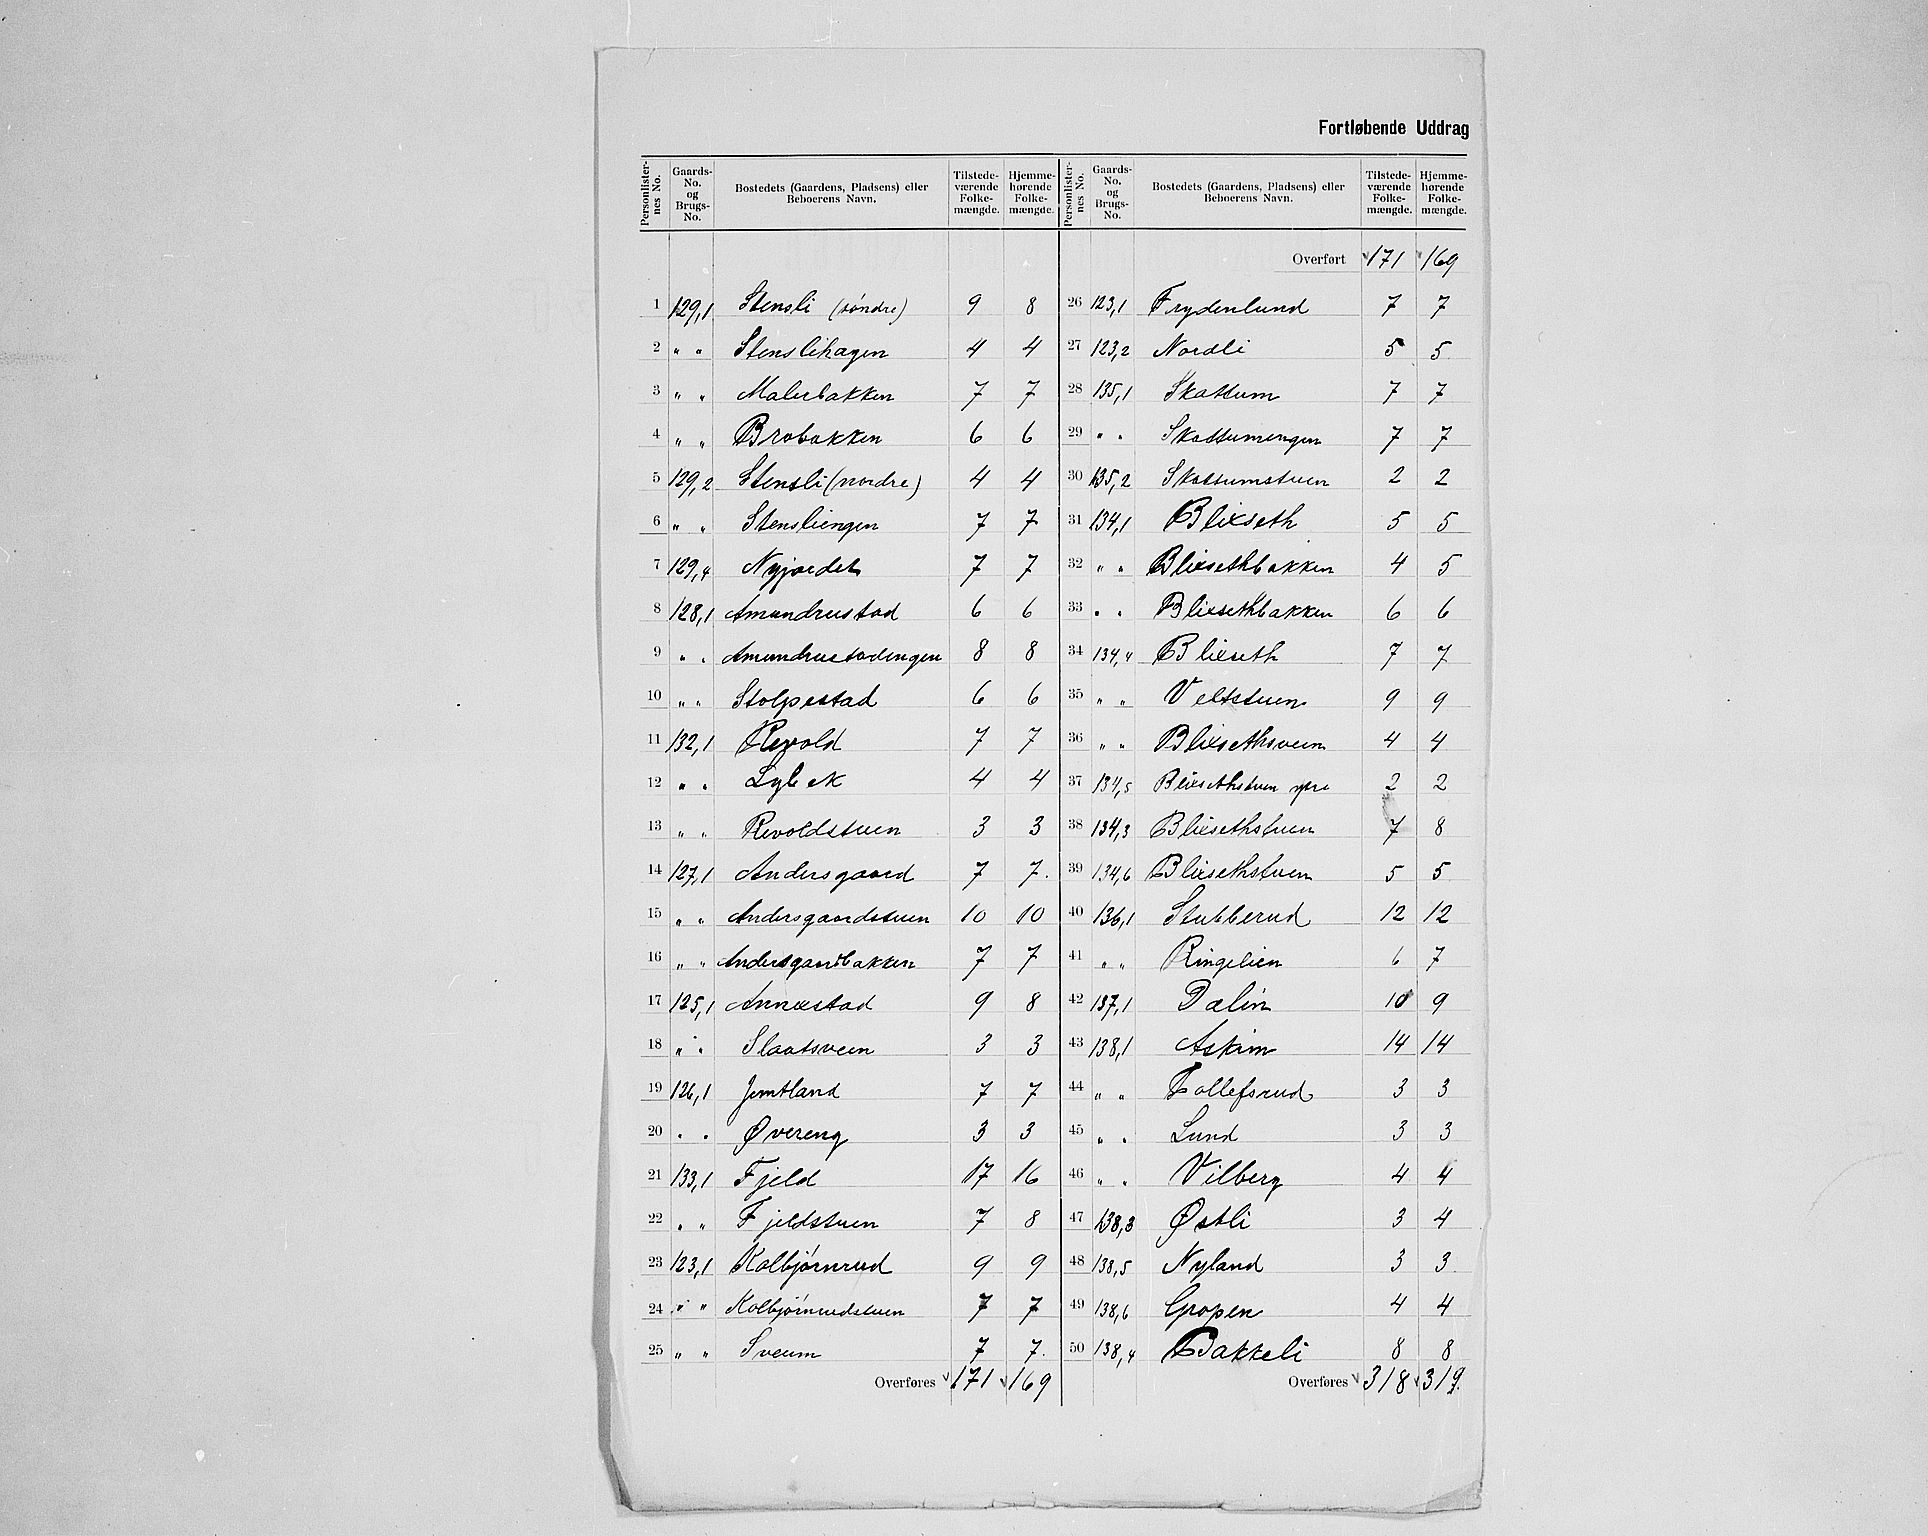 Fortløbende Uddrag
Personlisternes No. Gaards-No. og Brugs-No. Bostedets (Gaardens, Pladsens) eller Beboerens Navn. Tilstedeværende Folkemængde. Hjemmehørende Folkemængde.
1 129,1 Stensli (söndre) 9 8
2 " " Stenslihagen 4 4
3 " " Malerbakken 7 7
4 " " Brobakken 6 6
5 129,2 Stensli (nordre) 4 4
6 " " Stensliengen 7 7
7 129,4 Nyjordet 7 7
8 128,1 Amundrustad 6 6
9 " " Amundrustadengen 8 8
10 " " Stolpestad 6 6
11 132,1 Revold 7 7
12 " " Lybek 4 4
13 " " Revoldstuen 3 3
14 127,1 Andersgaard 7 7.
15 " " Andersgaardstuen 10 10
16 " " Andersgaardbakken 7 7
17 125,1 Annestad 9 8
18 " " Slaatsveen 3 3
19 126,1 Jemtland 7 7
20 " " Øvereng 3 3
21 133,1 Fjeld 17 16
22 " " Fjeldstuen 7 8
23 123,1 Kolbjörnrud 9 9
24 " " Kolbjörnrudstuen 7 7
25 " " Sveum 7 7.
Overføres 171 169
Personlisternes No. Gaards-No. og Brugs-No. Bostedets (Gaardens, Pladsens) eller Beboerens Navn. Tilstedeværende Folkemængde. Hjemmehørende Folkemængde.
Overført 171 169
26 123,1 Frydenlund 7 7
27 123,2 Nordli 5 5
28 135,1 Skattum 7 7
29 " " Skattumengen 7 7
30 135,2 Skattumstuen 2 2
31 134,1 Blixseth 5 5
32 " " Blixsethbakken 4 5
33 " " Blixsethbakken 6 6
34 134,4 Blixseth 7 7
35 " " Veltstuen 9 9
36 " " Blixsethsveen 4 4
37 134,5 Blixsethstuen 2 2
38 134,3 Blixsethstuen 7 8
39 134,6 Blixsethstuen 5 5
40 136,1 Stubberud 12 12
41 " " Ringelien 6 7
42 137,1 Dalin 10 9
43 138,1 Askim 14 14
44 " " Tollefsrud 3 3
45 " " Lund 3 3
46 " " Vilberg 4 4
47 138,3 Østli 3 4
48 138,5 Nyland 3 3
49 138,6 Gropen 4 4
50 138,4 Bakkeli 8 8
Overføres 318 319.